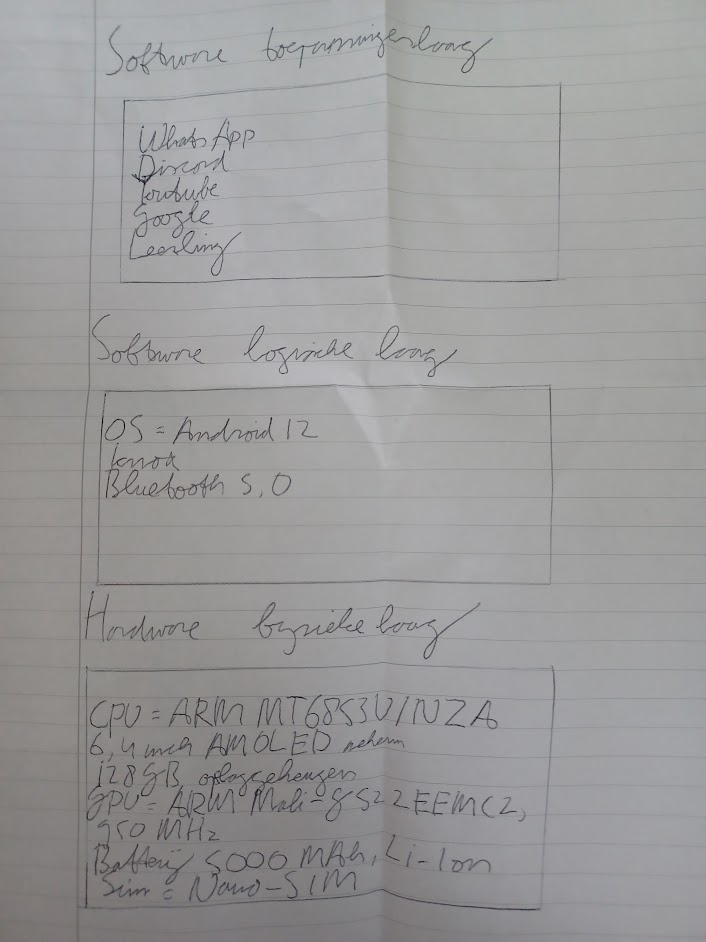 Software toepassingenlaag
WhatsApp
Discord
Youtube
Google
Leerling
Software logische laag
OS = Android 12
knox
Bluetooth 5,0
Hardware fysieke laag
CPU = ARM MT6853V/NZA
6,4 inch AMOLED scherm
128 GB opslaggeheugen
GPU = ARM Mali-G522EEMC2,
950 MHz
Batterij 5000 MAh, Li-Ion
Sim = Nano-SIM